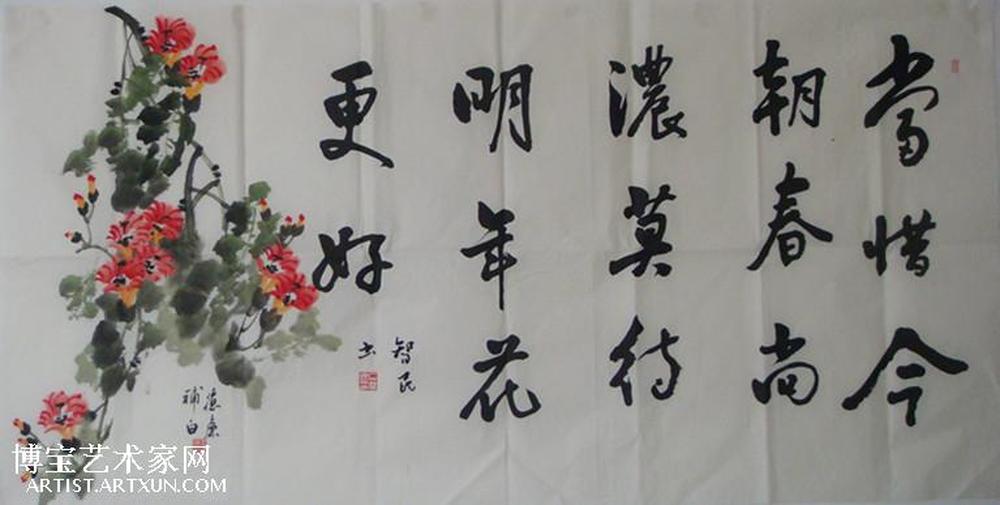 當惜今
朝春尚
濃莫待
明年花
更好
智民
书
補白
博宝艺术家网
ARTIST.ARTXUN.COM